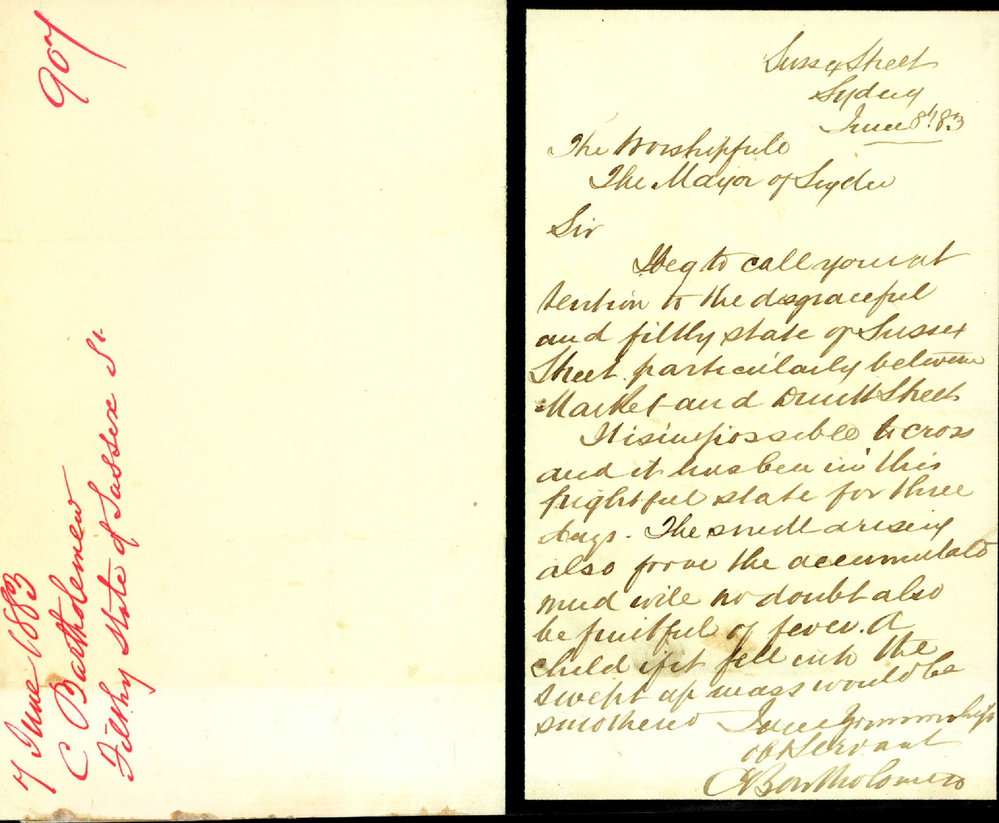 907
7 June 1883
C Bartholomew
Filthy state of Sussex St.
Sussex Street
Sydney
June 8th/83
The Worshipfull
The Mayor of Sydney
Sir
I beg to call your at
tention to the disgraceful
and filthy state of Sussex
Street particularly between
Market and Druitt Street
It is impossible to cross
and it has been in this
frightful state for three
days. The smell arising
also from the accumulated
mud will no doubt also
be fruitful of fever. A
child if it fell into the
swept up mass would be
smothered
I am Your Worship's
ob Servant
C Bartholomew